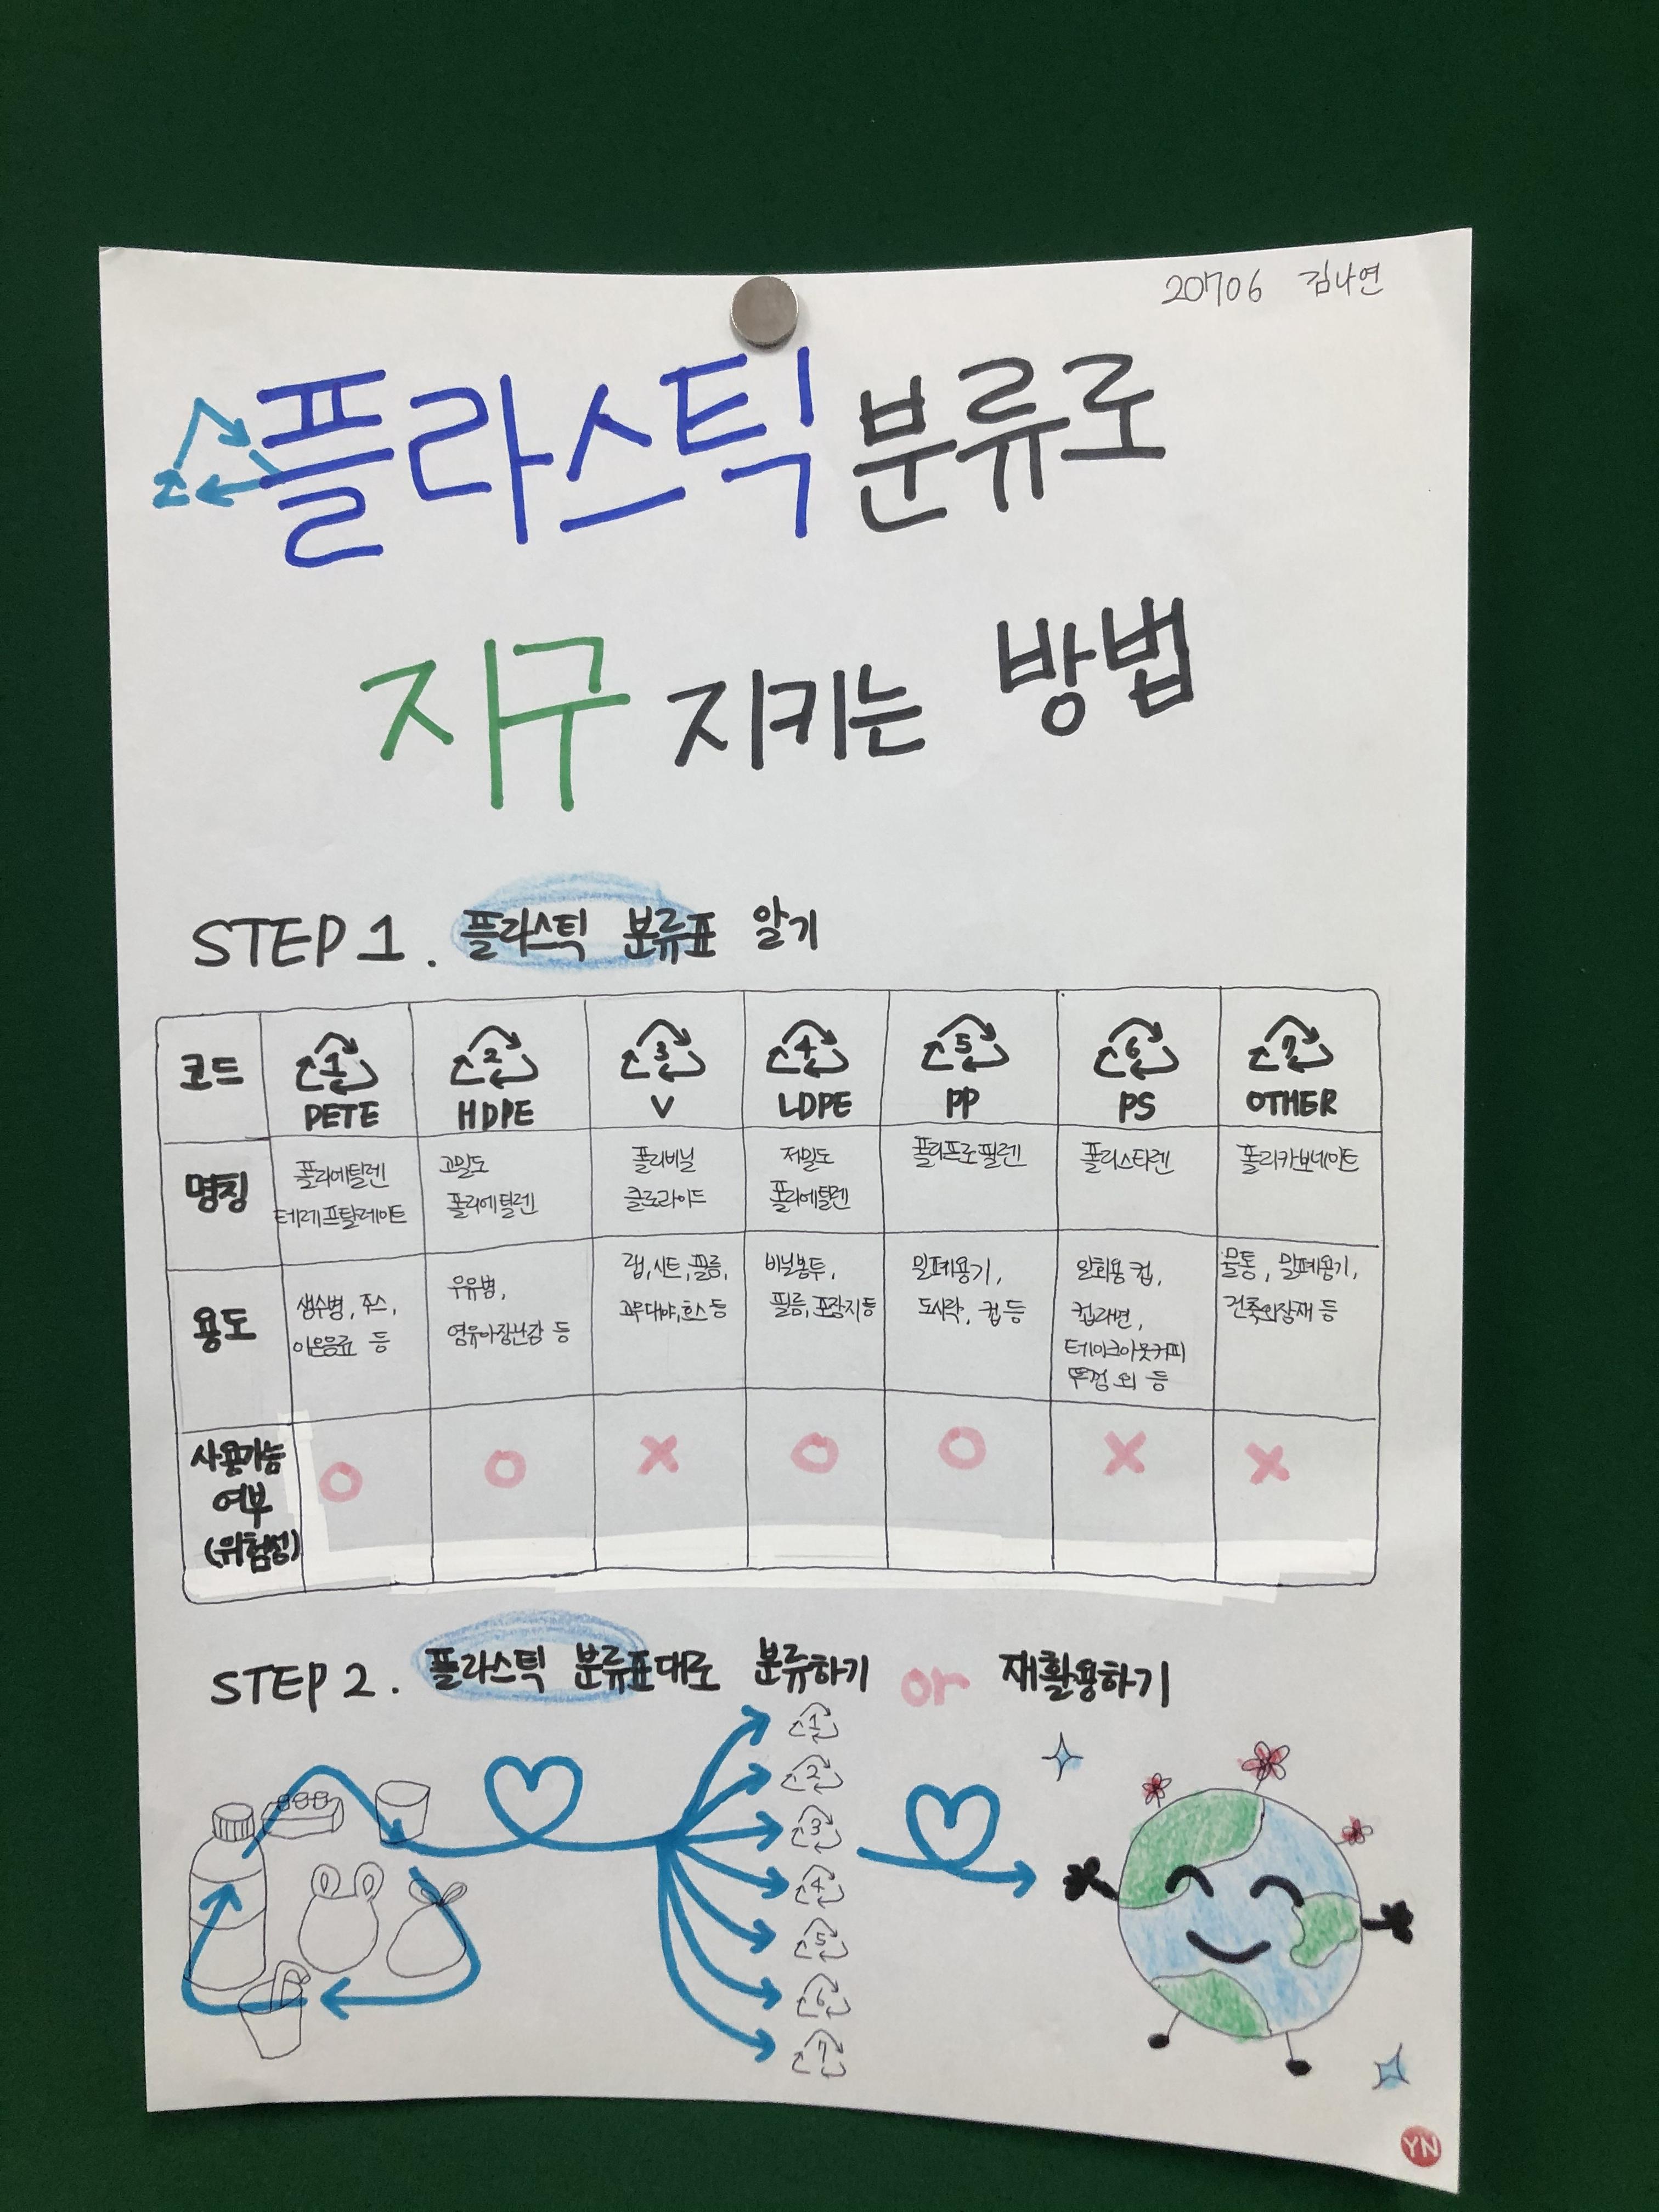 20706 김나연
플라스틱 분류로
지구 지키는 방법
STEP 1. 플라스틱 분류표 알기
코드 1 PETE 2 HDPE 3 V 4 LDPE 5 PP 6 PS 7 OTHER
명칭
폴리에틸렌
테레프탈레이트
고밀도
폴리에틸렌
폴리비닐
클로라이드
저밀도
폴리에틸렌
폴리프로필렌
폴리스티렌
폴리카보네이트
용도
생수병, 주스,
이온음료 등
우유병,
영유아장난감 등
랩, 시트, 필름,
고무대야, 호스 등
비닐봉투,
필름, 포장지 등
밀폐용기,
도시락, 컵 등
일회용 컵,
컵라면,
테이크아웃커피
뚜껑 외 등
물통, 밀폐용기,
건축외장재 등
사용가능
여부
(위험성)
O O X O O X X
STEP 2. 플라스틱 분류표대로 분류하기 or 재활용하기
1
2
3
4
5
6
7
YN